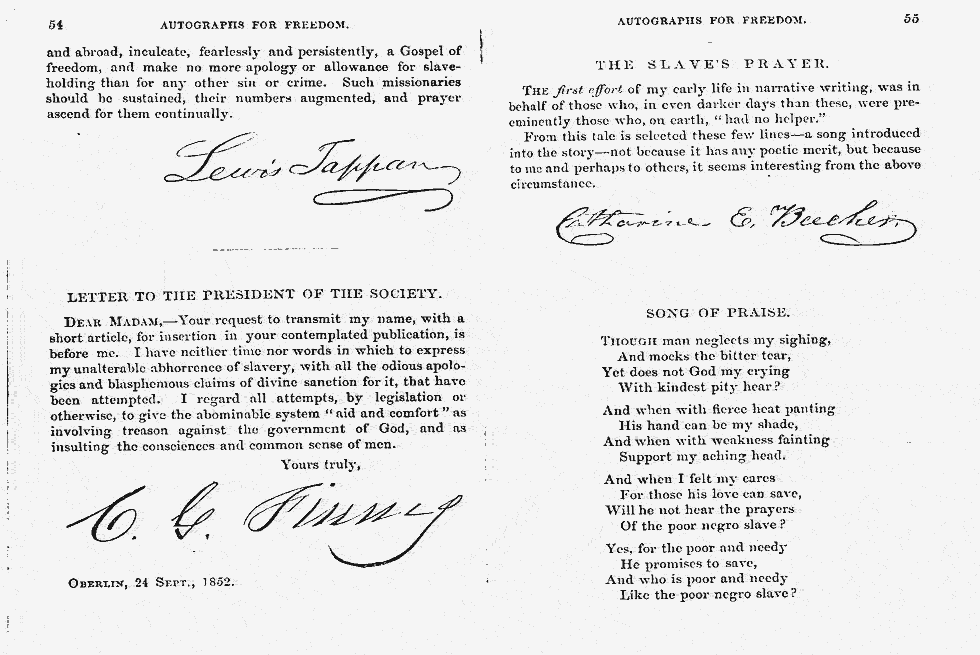 54 AUTOGRAPHS FOR FREEDOM.
and abroad, inculcate, fearlessly and persistently, a Gospel of
freedom, and make no more apology or allowance for slave-
holding than for any other sin or crime. Such missionaries
should be sustained, their numbers augmented, and prayer
ascend for them continually.
Lewis Tappan
LETTER TO THE PRESIDENT OF THE SOCIETY.
DEAR MADAM,—Your request to transmit my name, with a
short article, for insertion in your contemplated publication, is
before me. I have neither time nor words in which to express
my unalterable abhorrence of slavery, with all the odious apolo-
gies and blasphemous claims of divine sanction for it, that have
been attempted. I regard all attempts, by legislation or
otherwise, to give the abominable system "aid and comfort" as
involving treason against the government of God, and as
insulting the consciences and common sense of men.
Yours truly,
C. G. Finney
OBERLIN, 24 SEPT., 1852.
AUTOGRAPHS FOR FREEDOM. 55
THE SLAVE'S PRAYER.
THE first effort of my early life in narrative writing, was in
behalf of those who, in even darker days than these, were pre-
eminently those who, on earth, "had no helper."
From this tale is selected these few lines—a song introduced
into the story—not because it has any poetic merit, but because
to me and perhaps to others, it seems interesting from the above
circumstance.
Catharine E. Beecher
SONG OF PRAISE.
THOUGH man neglects my sighing,
And mocks the bitter tear,
Yet does not God my crying
With kindest pity hear?
And when with fierce heat panting
His hand can be my shade,
And when with weakness fainting
Support my aching head.
And when I felt my cares
For those his love can save,
Will he not hear the prayers
Of the poor negro slave?
Yes, for the poor and needy
He promises to save,
And who is poor and needy
Like the poor negro slave?